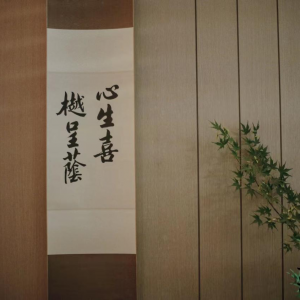 心生喜
樾呈蔭